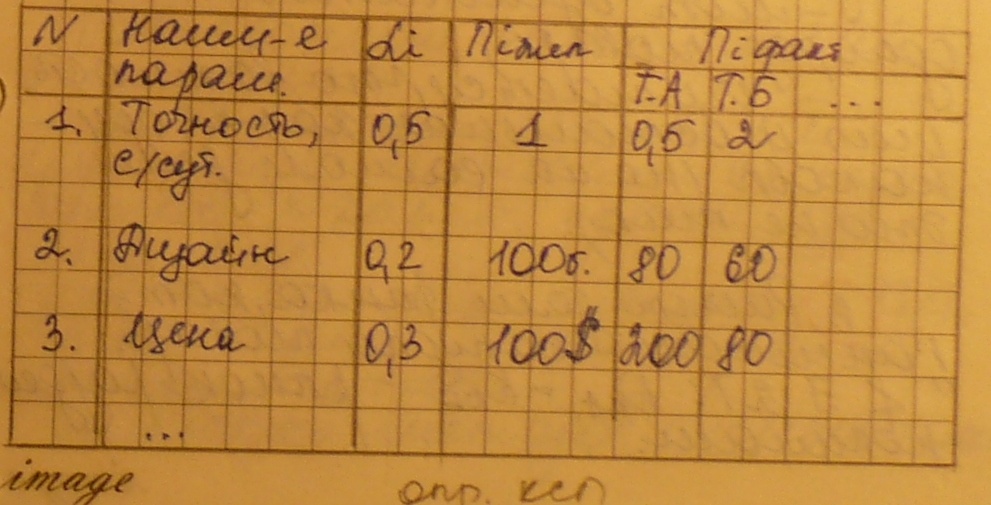 N Наим-е αi Пiжел Пiфакт
парам. Т.А Т.Б ...
1. Точность, 0,5 1 0,5 2
с/сут.
2. Дизайн 0,2 100б. 80 60
3. Цена 0,3 100$ 200 80
...
image опр. КСП